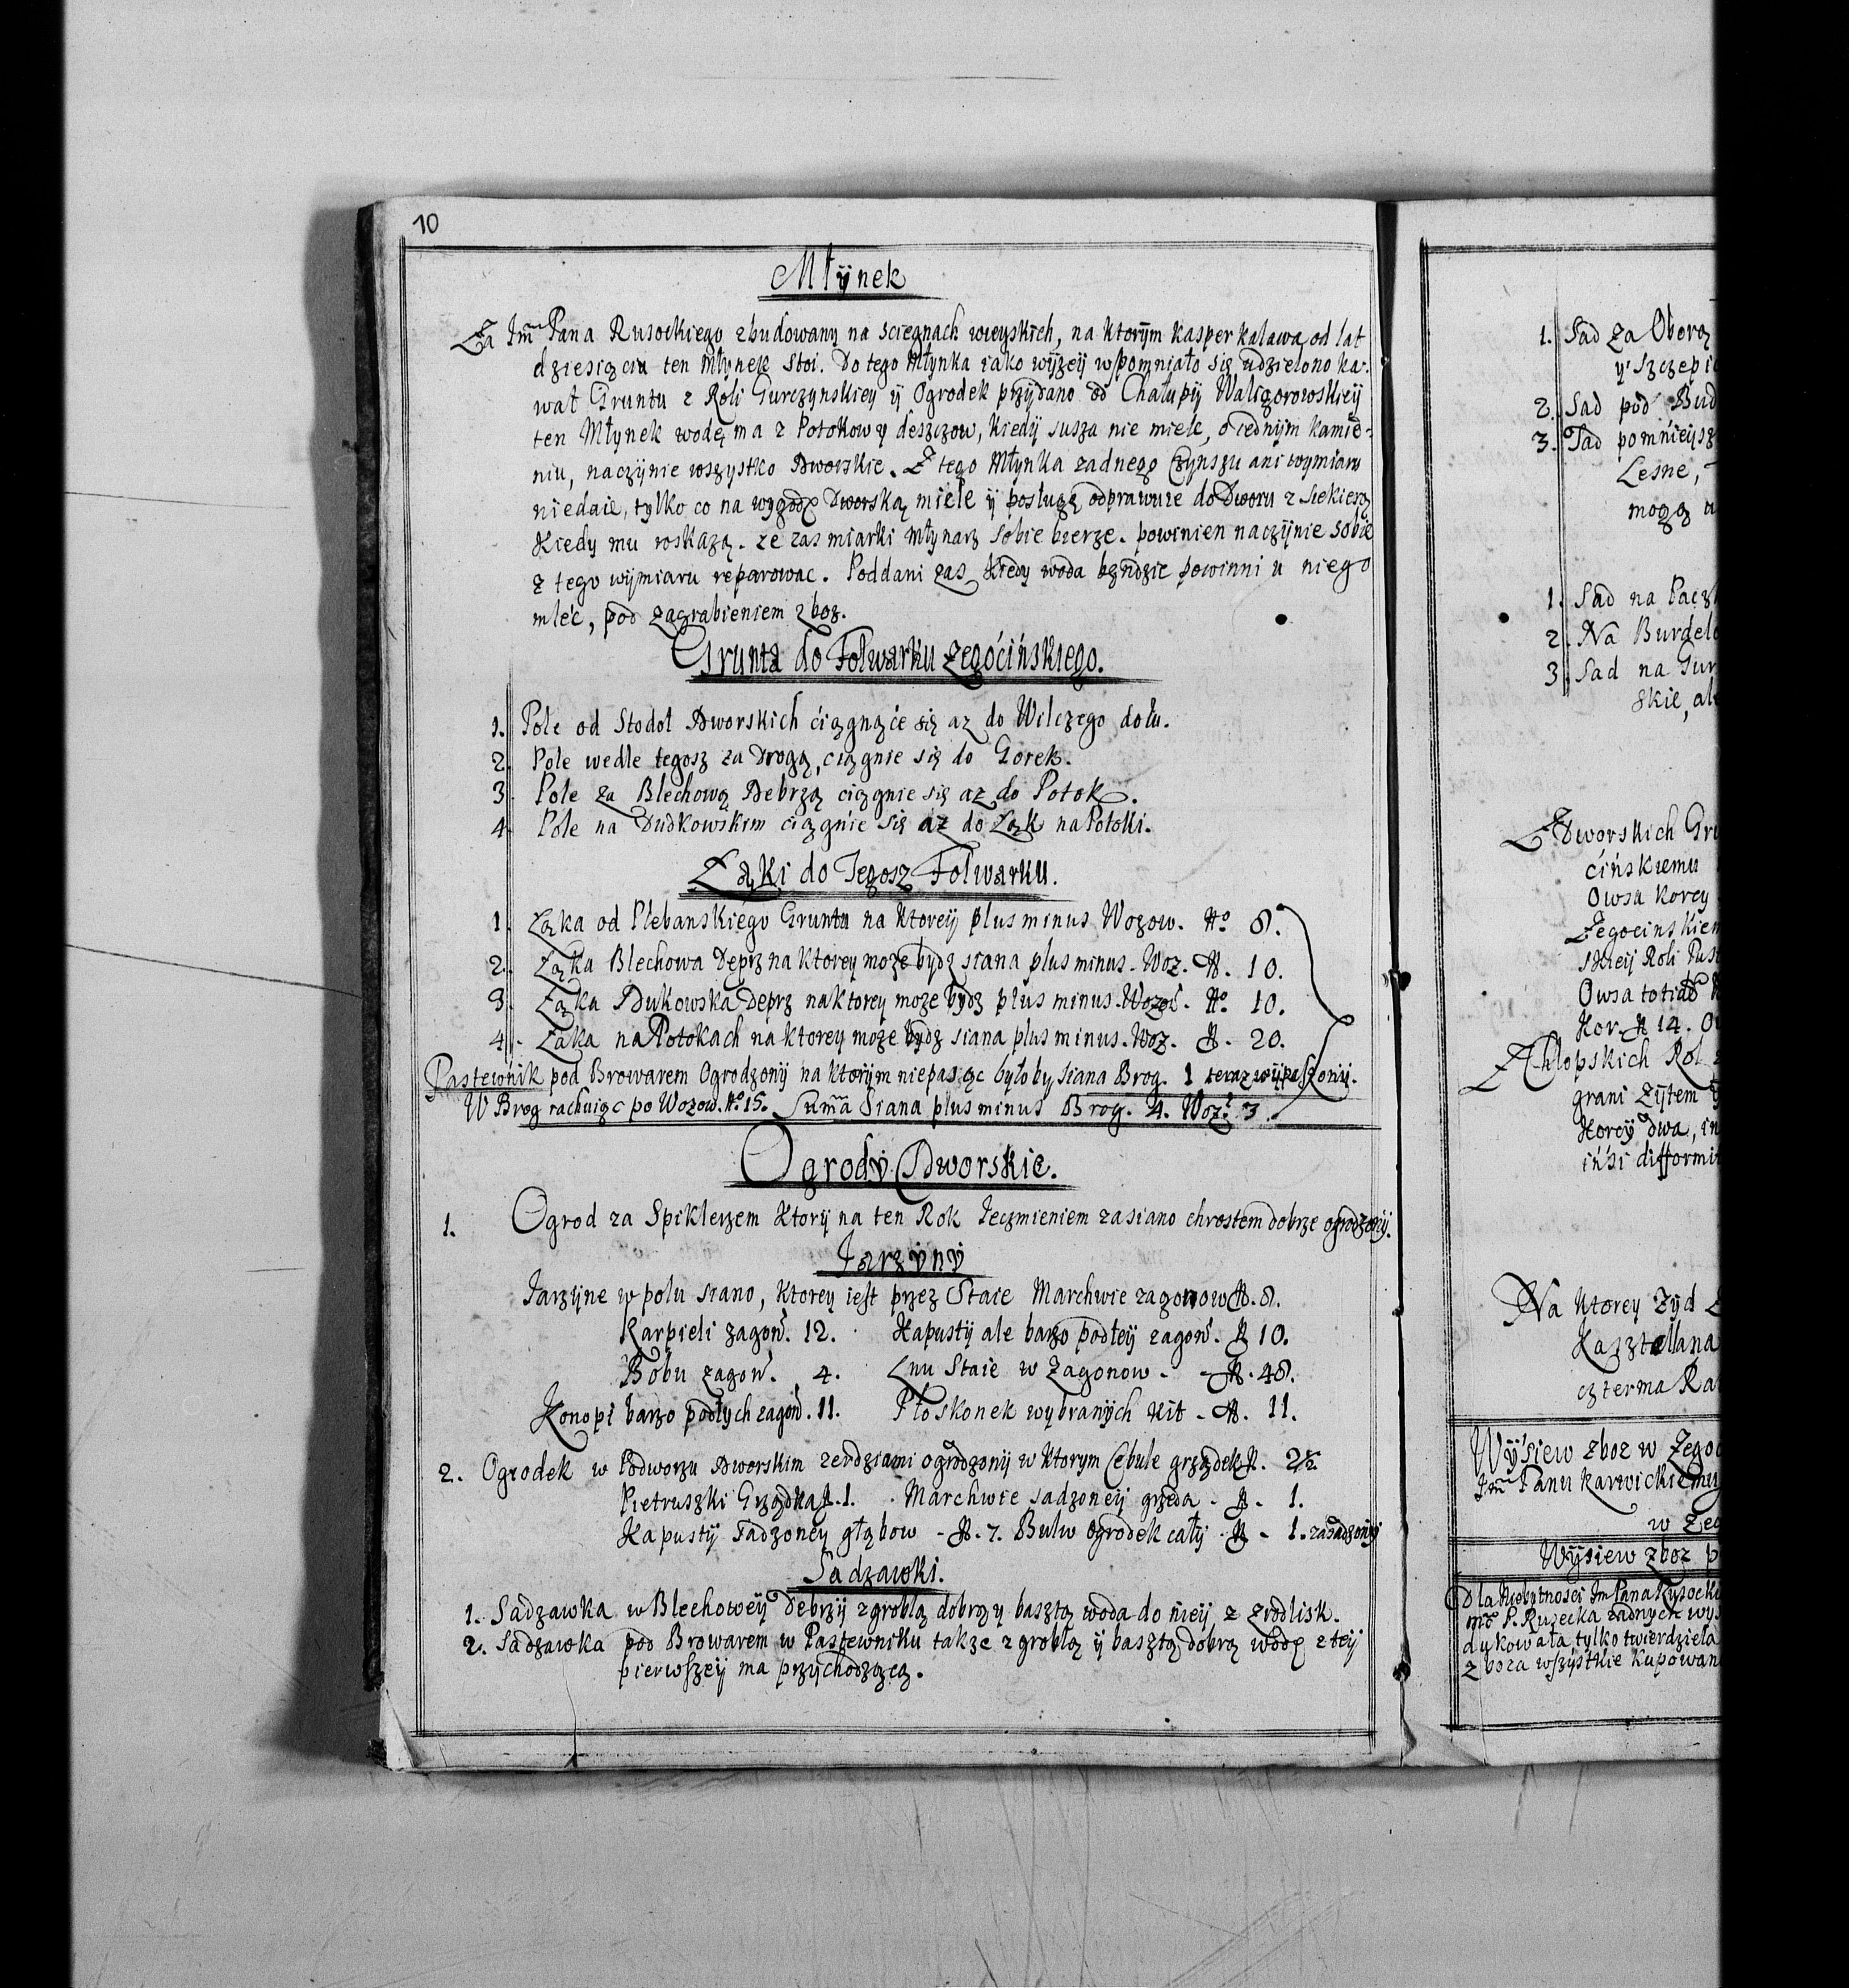 10
Młÿnek
Za Jm̃ Pana Rusockiego zbudowany na sciegnach wieyskich, na ktorÿm Kasper Kalawa od lat
dziesiąciu ten Młÿnek stoi. Do tego Młÿnka iako wÿzeÿ wspomniało się udzielono ka-
wał Gruntu z Roli Gurczynskiey ÿ Ogrodek przÿdano od Chałupÿ Waligorowskieÿ
ten Młÿnek wodę ma z Potokow y deszczow, kiedÿ susza nie miele, o iednÿm kamie-
niu, naczÿnie wszystko Dworskie. Z tego Młÿnka zadnego Czÿnszu ani wymiaru
niedaie, tylko co na wygodę Dworską miele ÿ posługę odprawuie do Dworu z siekierą
kiedy mu roskazą. ze zas miarki Młÿnarz sobie bierze. powinien naczÿnie sobie
z tego wÿmiaru reparowac. Poddani zas kiedy woda bęndzie powinni u niego
mleć, pod zagrabieniem zboz.
Grunta do Folwarku Zegocińskiego.
1. Pole od Stodoł Dworskich ciągnące się az do Wilczego dołu.
2. Pole wedle tegosz za Drogą, ciągnie się do Gorek.
3. Pole za Blechową Debrzą ciągnie się az do Potok.
4. Pole na Dudkowskim ciągnie się az do Łąk na Potoki.
Łąki do Tegosz Folwarku.
1. Łąka od Plebanskiego Gruntu na ktoreÿ plus minus Wozow. No 8.
2. Łąka Blechowa Deprz na ktorey moze bydz siana plus minus. Woz. N. 10.
3. Łąka Dukowska Deprz na ktorey moze bydz plus minus. Wozow. No. 10.
4. Łąka na Potokach na ktorey moze bydz siana plus minus. Woz. N. 20.
Pastewnik pod Browarem Ogrodzonÿ na ktorÿm niepasąc byłoby siana Brog. 1 teraz wÿpaszonÿ.
W Brog rachuiąc po Wozow. No 15. Sum̃a Siana plus minus Brog. 4. Woz. 3.
Ogrodÿ Dworskie.
1. Ogrod za Spiklerzem ktorÿ na ten Rok Ieczmieniem zasiano chrostem dobrze ogrodzonÿ.
Jarzÿnÿ
Jarzÿne w polu siano, ktorey iest przez Staie Marchwie zagonow N. 8.
Karpieli zagon. 12. Kapustÿ ale barzo podłeÿ zagon. N 10.
Bobu zagon. 4. Lnu Staie w Zagonow. N. 48.
Konopi barzo podłych zagon. 11. Płoskonek wybranÿch kit - N. 11.
2. Ogrodek w Podworzu Dworskim zerdziami ogrodzonÿ w ktorym Cebule grządek N.
Pietruszki Grządka N. 1. Marchwie sadzoneÿ grzęda - N. 1.
Kapustÿ sadzoney głąbow - N. 7. Bulw Ogrodek całÿ N - 1. zasadzonÿ
Sadzawki.
1. Sadzawka w Blechoweÿ Debrzÿ z groblą dobrą y basztą woda do nieÿ z zrodlisk.
2. Sadzawka pod Browarem w Pastewniku takze z groblą ÿ basztą dobrą wodę z teÿ
pierwszeÿ ma przÿchodzącą.
1. Sad za Oborą
y Szczepi
2. Sad pod Bud
3. Sad pomnieÿsz
Lesne,
mogą
1. Sad na Pącz
2. Na Burdel
3. Sad na Gur
skie, al
Z Dworskich Gru
cińskiemu
Owsa Korey
Zegocinskiem
skieÿ Roli Pus
Owsa totide
Kor. N 14. O
Z Chłopskich Rol
grani Zÿtem
Korcÿ dwa, in
insi difformi
Na ktorey Zÿd
Kasztellana
czterma Ra
Wÿsiew zboz w Zego
Jm̃ Panu Karwickiemu
w Zeg
Wÿsiew zboz p
Dla Niebytnosci Jm Pana Rusocki
P. Rusecka zadnych wy
dukowała tylko twierdzieła
z boza wszÿstkie kupowan